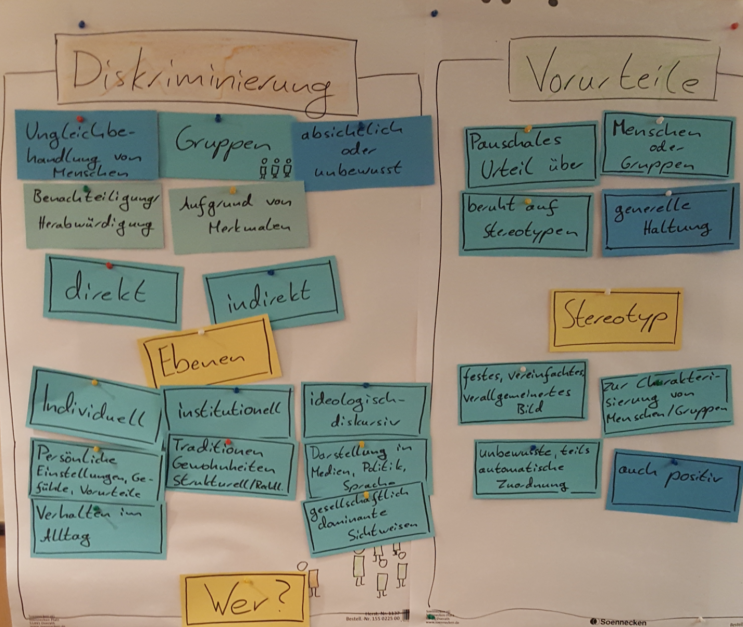 Diskriminierung
Ungleichbe-
handlung von
Menschen
Gruppen
absichtlich
oder
unbewusst
Benachteiligung/
Herabwürdigung
Aufgrund von
Merkmalen
direkt
indirekt
Ebenen
Individuell
institutionell
ideologisch-
diskursiv
Persönliche
Einstellungen, Ge-
fühle, Vorurteile
Traditionen
Gewohnheiten
Strukturell/
Darstellung in
Medien, Politik,
Sprache
Verhalten im
Alltag
gesellschaftlich
dominante
Sichtweisen
Wer?
Vorurteile
Pauschales
Urteil über
Menschen
oder
Gruppen
beruht auf
Stereotypen
generelle
Haltung
Stereotyp
festes, vereinfachtes,
verallgemeinertes
Bild
zur Charakteri-
sierung von
Menschen/Gruppen
unbewusste, teils
automatische
Zuordnung
auch positiv
Soennecken